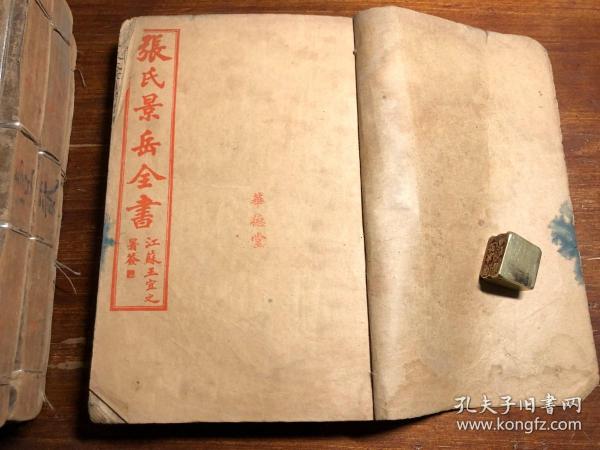 張氏景岳全書
江蘇王宜之
署簽
華德堂
孔夫子旧书网
www.kongfz.com